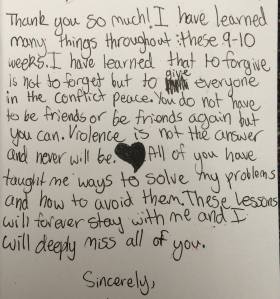 Thank you so much! I have learned
many things throughout these 9-10
weeks. I have learned that to forgive
is not to forget but to give everyone
in the conflict peace. You do not have
to be friends or be friends again but
you can. Violence is not the answer
and never will be. All of you have
taught me ways to solve my problems
and how to avoid them. These lessons
will forever stay with me and I
will deeply miss all of you.
Sincerely,